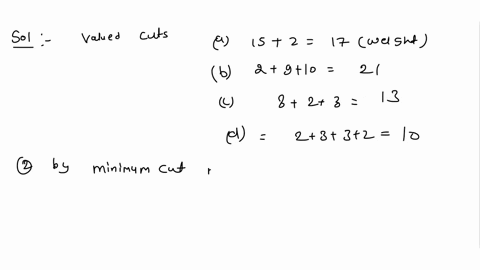 Sol :- valued cuts (a) 15 + 2 = 17 (weight)
(b) 2 + 9 + 10 = 21
(c) 8 + 2 + 3 = 13
(d) = 2 + 3 + 3 + 2 = 10
② by minimum cut